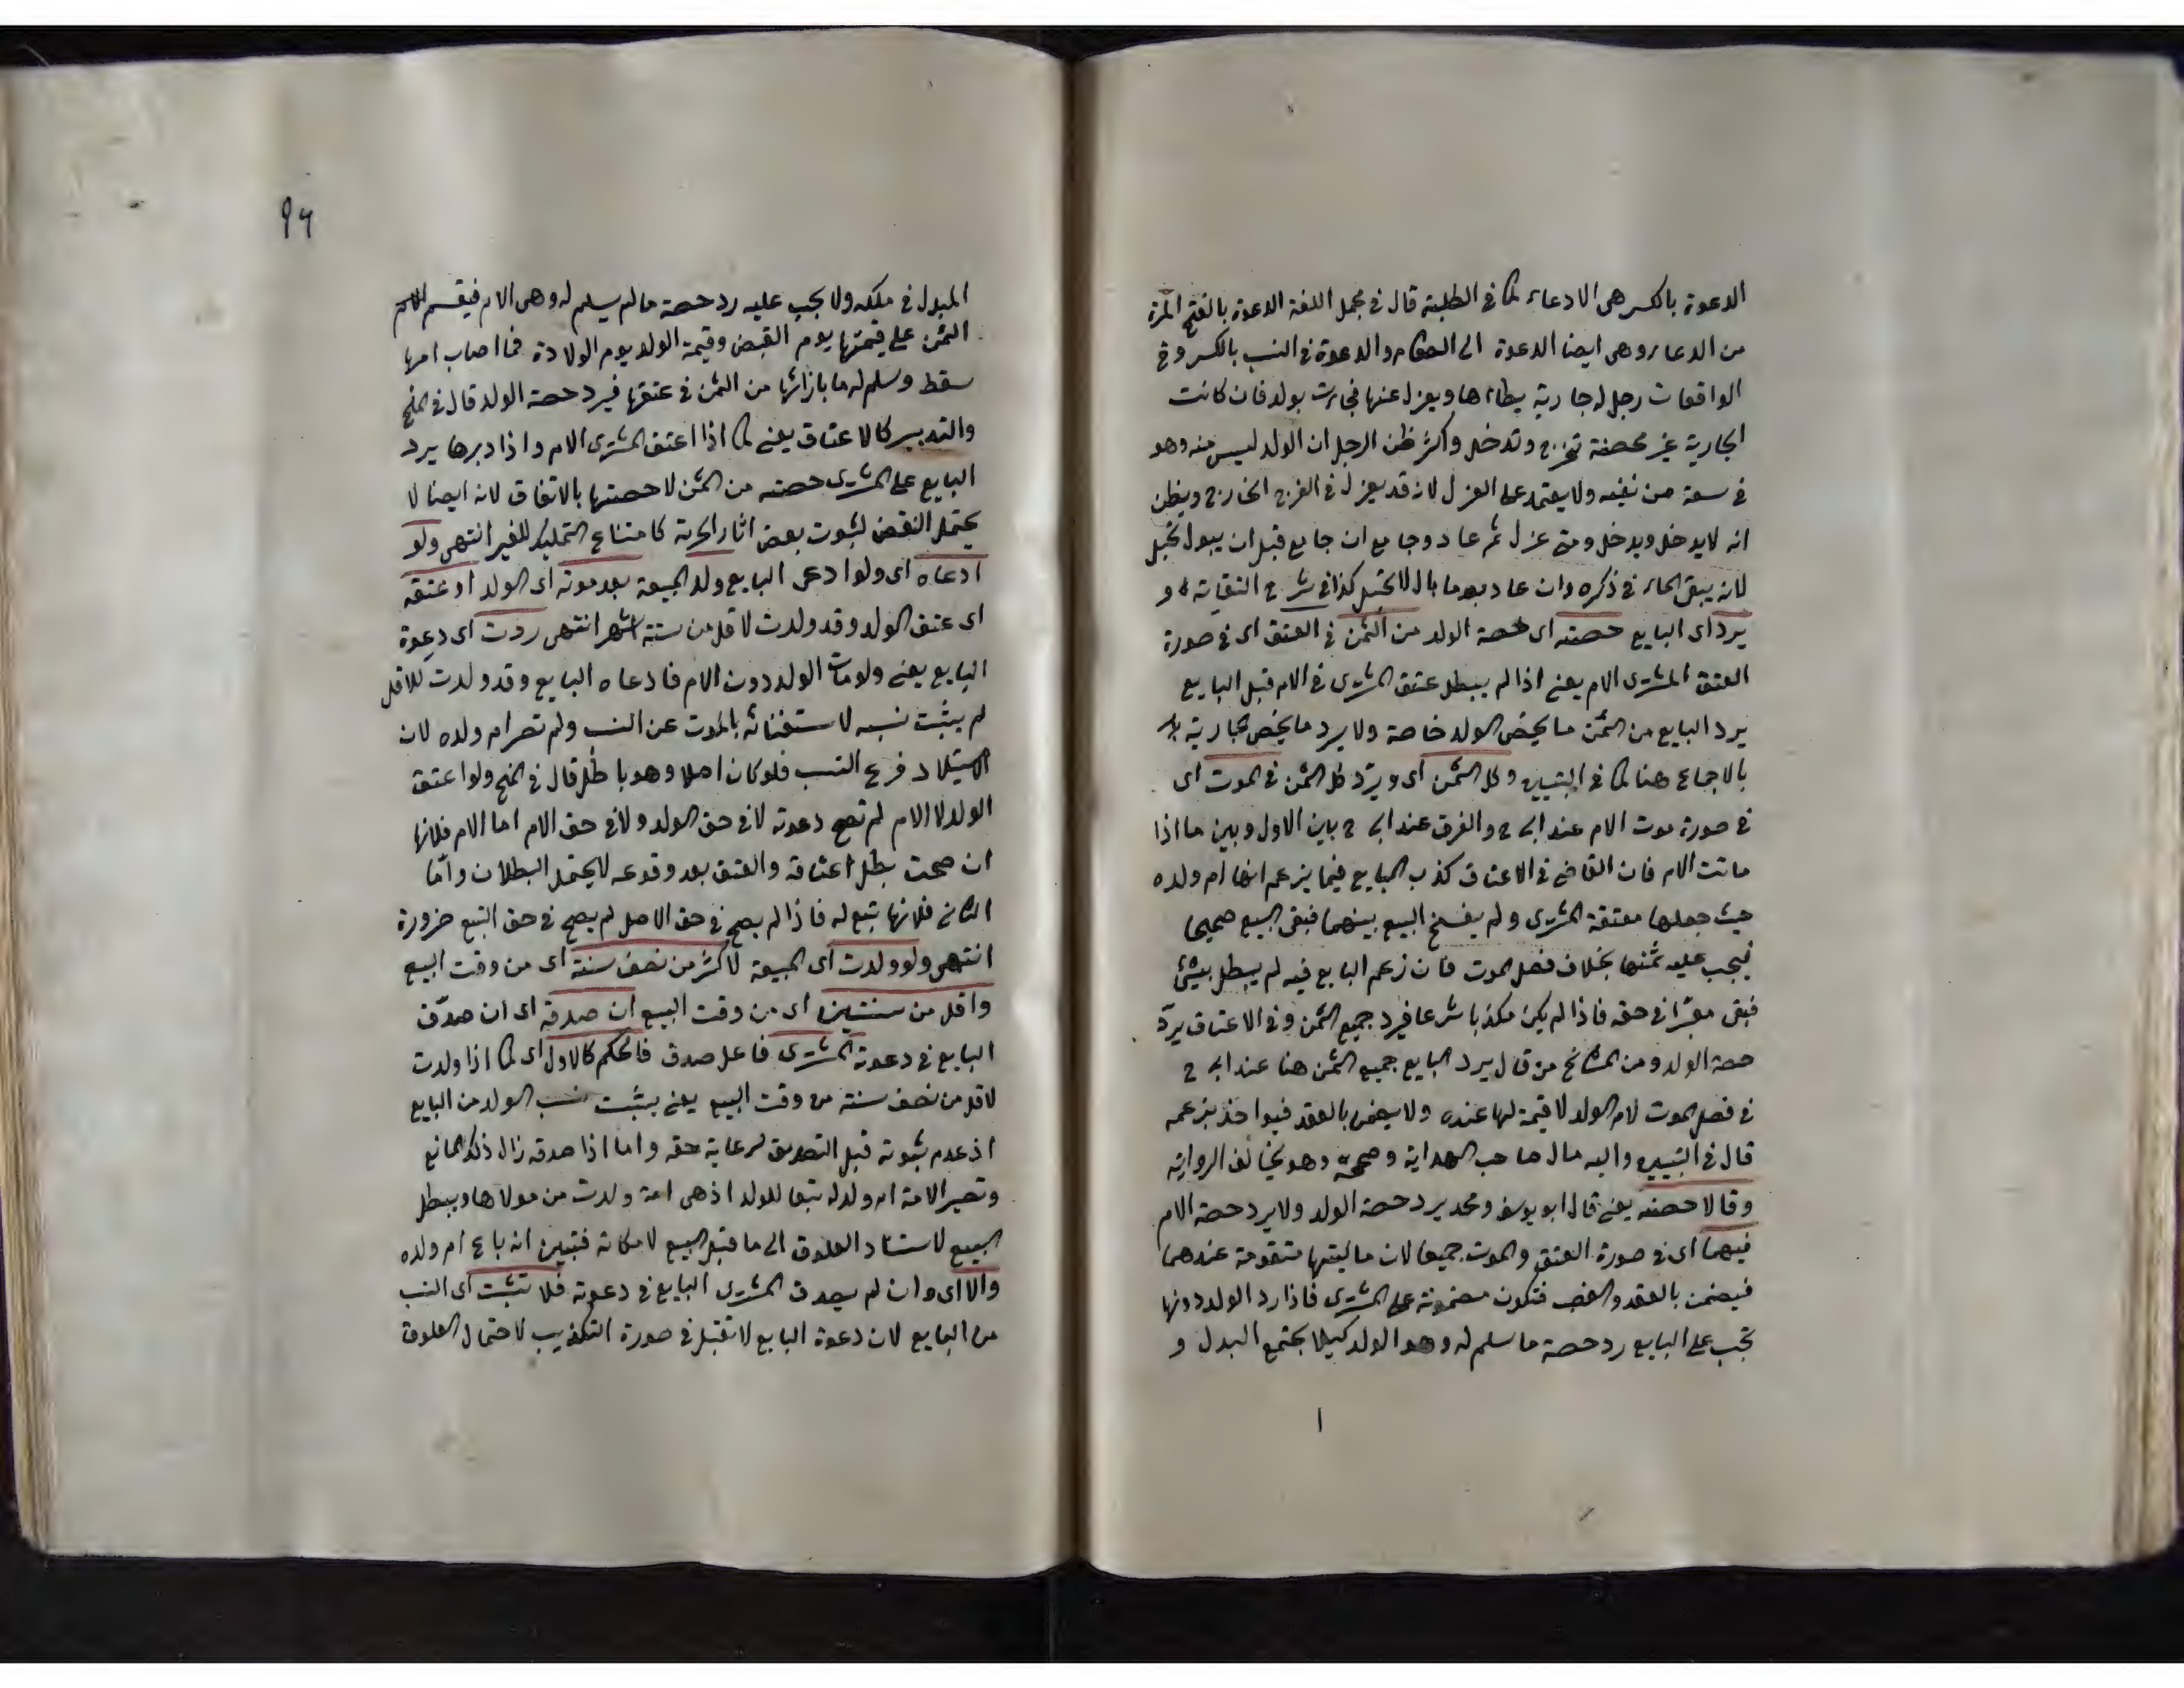 الدعوة بالكسر هى الادعاء كما فى الطلبة قال فى مجمل اللغة الدعوة بالفتح المرة
من الدعاء وهى ايضا الدعوة الى الطعام والدعوة فى النسب بالكسر وفى
الواقعات رجل له جارية يطاءها ويعزل عنها فجاءت بولد فان كانت
الجارية غير محصنة تخرج وتدخل واكثر ظن الرجل ان الولد ليس منه وهو
فى سعة من نفيه ولا يعتمد على العزل لانه قد يعزل فى الفرج الخارج ويظن
انه لا يدخل ويدخل ومتى عزل ثم عاد وجامع ان جامع قبل ان يبول تحبل
لانه يبقى الماء فى ذكره وان عاد بعد ما بال لا تحبل كذا فى شرح النقاية و
يرد اى البايع حصته اى حصة الولد من الثمن فى العتق اى فى صورة
العتق المشترى الام يعنى اذا لم يبطل عتق المشترى فى الام قبل البايع
يرد البايع من الثمن ما يخص الولد خاصة ولا يرد ما يخص الجارية
بالاجماع هنا كما فى التبيين وكل الثمن اى ويرد كل الثمن فى الموت اى
فى صورة موت الام عند ابى ح والفرق عند ابى ح باين الاول وبين ما اذا
ماتت الام فان القاضى فى الاعتاق كذب البايع فيما يزعم انها ام ولده
حيث جعلها معتقة المشترى ولم يفسخ البيع بينهما فبقى البيع صحيحا
فيجب عليه ثمنها بخلاف فصل الموت فان زعم البايع فيه لم يبطل بشئ
فبقى معتبرا فى حقه فاذا لم يكن مكذبا شرعا فيرد جميع الثمن وفى الاعتاق يردّ
حصة الولد ومن المشايخ من قال يرد البايع جميع الثمن هنا عند ابى ح
فى فصل الموت لام الولد لا قيمة لها عنده ولا يضمن بالعقد فيواخذ بزعمه
قال فى التبيين واليه مال صاحب الهداية وصححه وهو يخالف الرواية
وقالا حصته يعنى قال ابو يوسف ومحمد يرد حصة الولد ولا يرد حصة الام
فيهما اى فى صورة العتق والموت جميعا لان ماليتها متقومة عندهما
فيضمن بالعقد والغصب فتكون مضمونة على المشترى فاذا رد الولد دونها
تجب على البايع رد حصة ما سلم له وهو الولد كيلا يجتمع البدل و
٩٦
المبدل فى ملكه ولا يجب عليه رد حصة ما لم يسلم له وهى الام فيقسم
الثمن على قيمتها يوم القبض وقيمة الولد يوم الولادة فما اصاب امها
سقط وسلم له ما بازائها من الثمن فى عتقها فيرد حصة الولد قال فى المنح
والتدبير كالاعتاق يعنى كما اذا اعتق المشترى الام واذا دبرها يرد
البايع على المشترى حصته من الثمن لا حصتها بالاتفاق لانه ايضا لا
يحتمل النقض لثبوت بعض اثار الحرية كامتناع التمليك للغير انتهى ولو
ادعاه اى ولو ادعى البايع ولد المبيعة بعد موته اى الولد او عتقه
اى عتق الولد وقد ولدت لاقل من ستة اشهر انتهى ردت اى دعوة
البايع يعنى ولو مات الولد دون الام فادعاه البايع وقد ولدت للاقل
لم يثبت نسبه لاستغنائه بالموت عن النسب ولم تصر ام ولده لان
الاستيلاد فرع النسب فلو كان اصلا وهو باطل قال فى المنح ولو اعتق
الولد لا الام لم تصح دعوته لا فى حق الولد ولا فى حق الام اما الام فلانها
ان صحت بطل اعتاقه والعتق بعد وقوعه لا يحتمل البطلان وامّا
الثانى فلانها تبع له فاذا لم يصح فى حق الاصل لم يصح فى حق التبع ضرورة
انتهى ولو ولدت اى المبيعة لاكثر من نصف سنة اى من وقت البيع
واقل من سنتين اى من وقت البيع ان صدقه اى ان صدّق
البايع فى دعوته المشترى فاعل صدق فالحكم كالاول اى كما اذا ولدت
لاقل من نصف سنة من وقت البيع يعنى يثبت نسب الولد من البايع
اذ عدم ثبوته قبل التصديق لرعاية حقه واما اذا صدقه زال ذلك المانع
وتصير الامة ام ولد له تبعا للولد اذ هى امة ولدت من مولاها ويبطل
البيع لاستناد العلوق الى ما قبل البيع لامكانه فتبين انه باع ام ولده
والا اى وان لم يصدق المشترى البايع فى دعوته فلا تثبت اى النسب
من البايع لان دعوة البايع لا تقبل فى صورة التكذيب لاحتمال العلوق